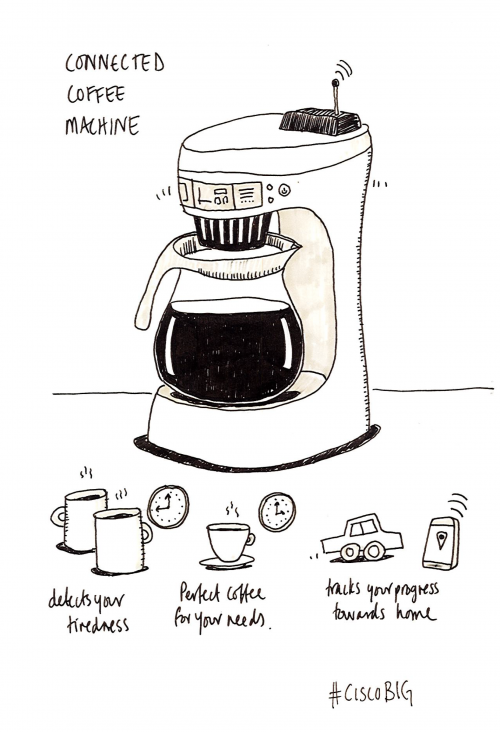 CONNECTED
COFFEE
MACHINE
detects your
tiredness
Perfect coffee
for your needs.
tracks your progress
towards home
#CISCOBIG